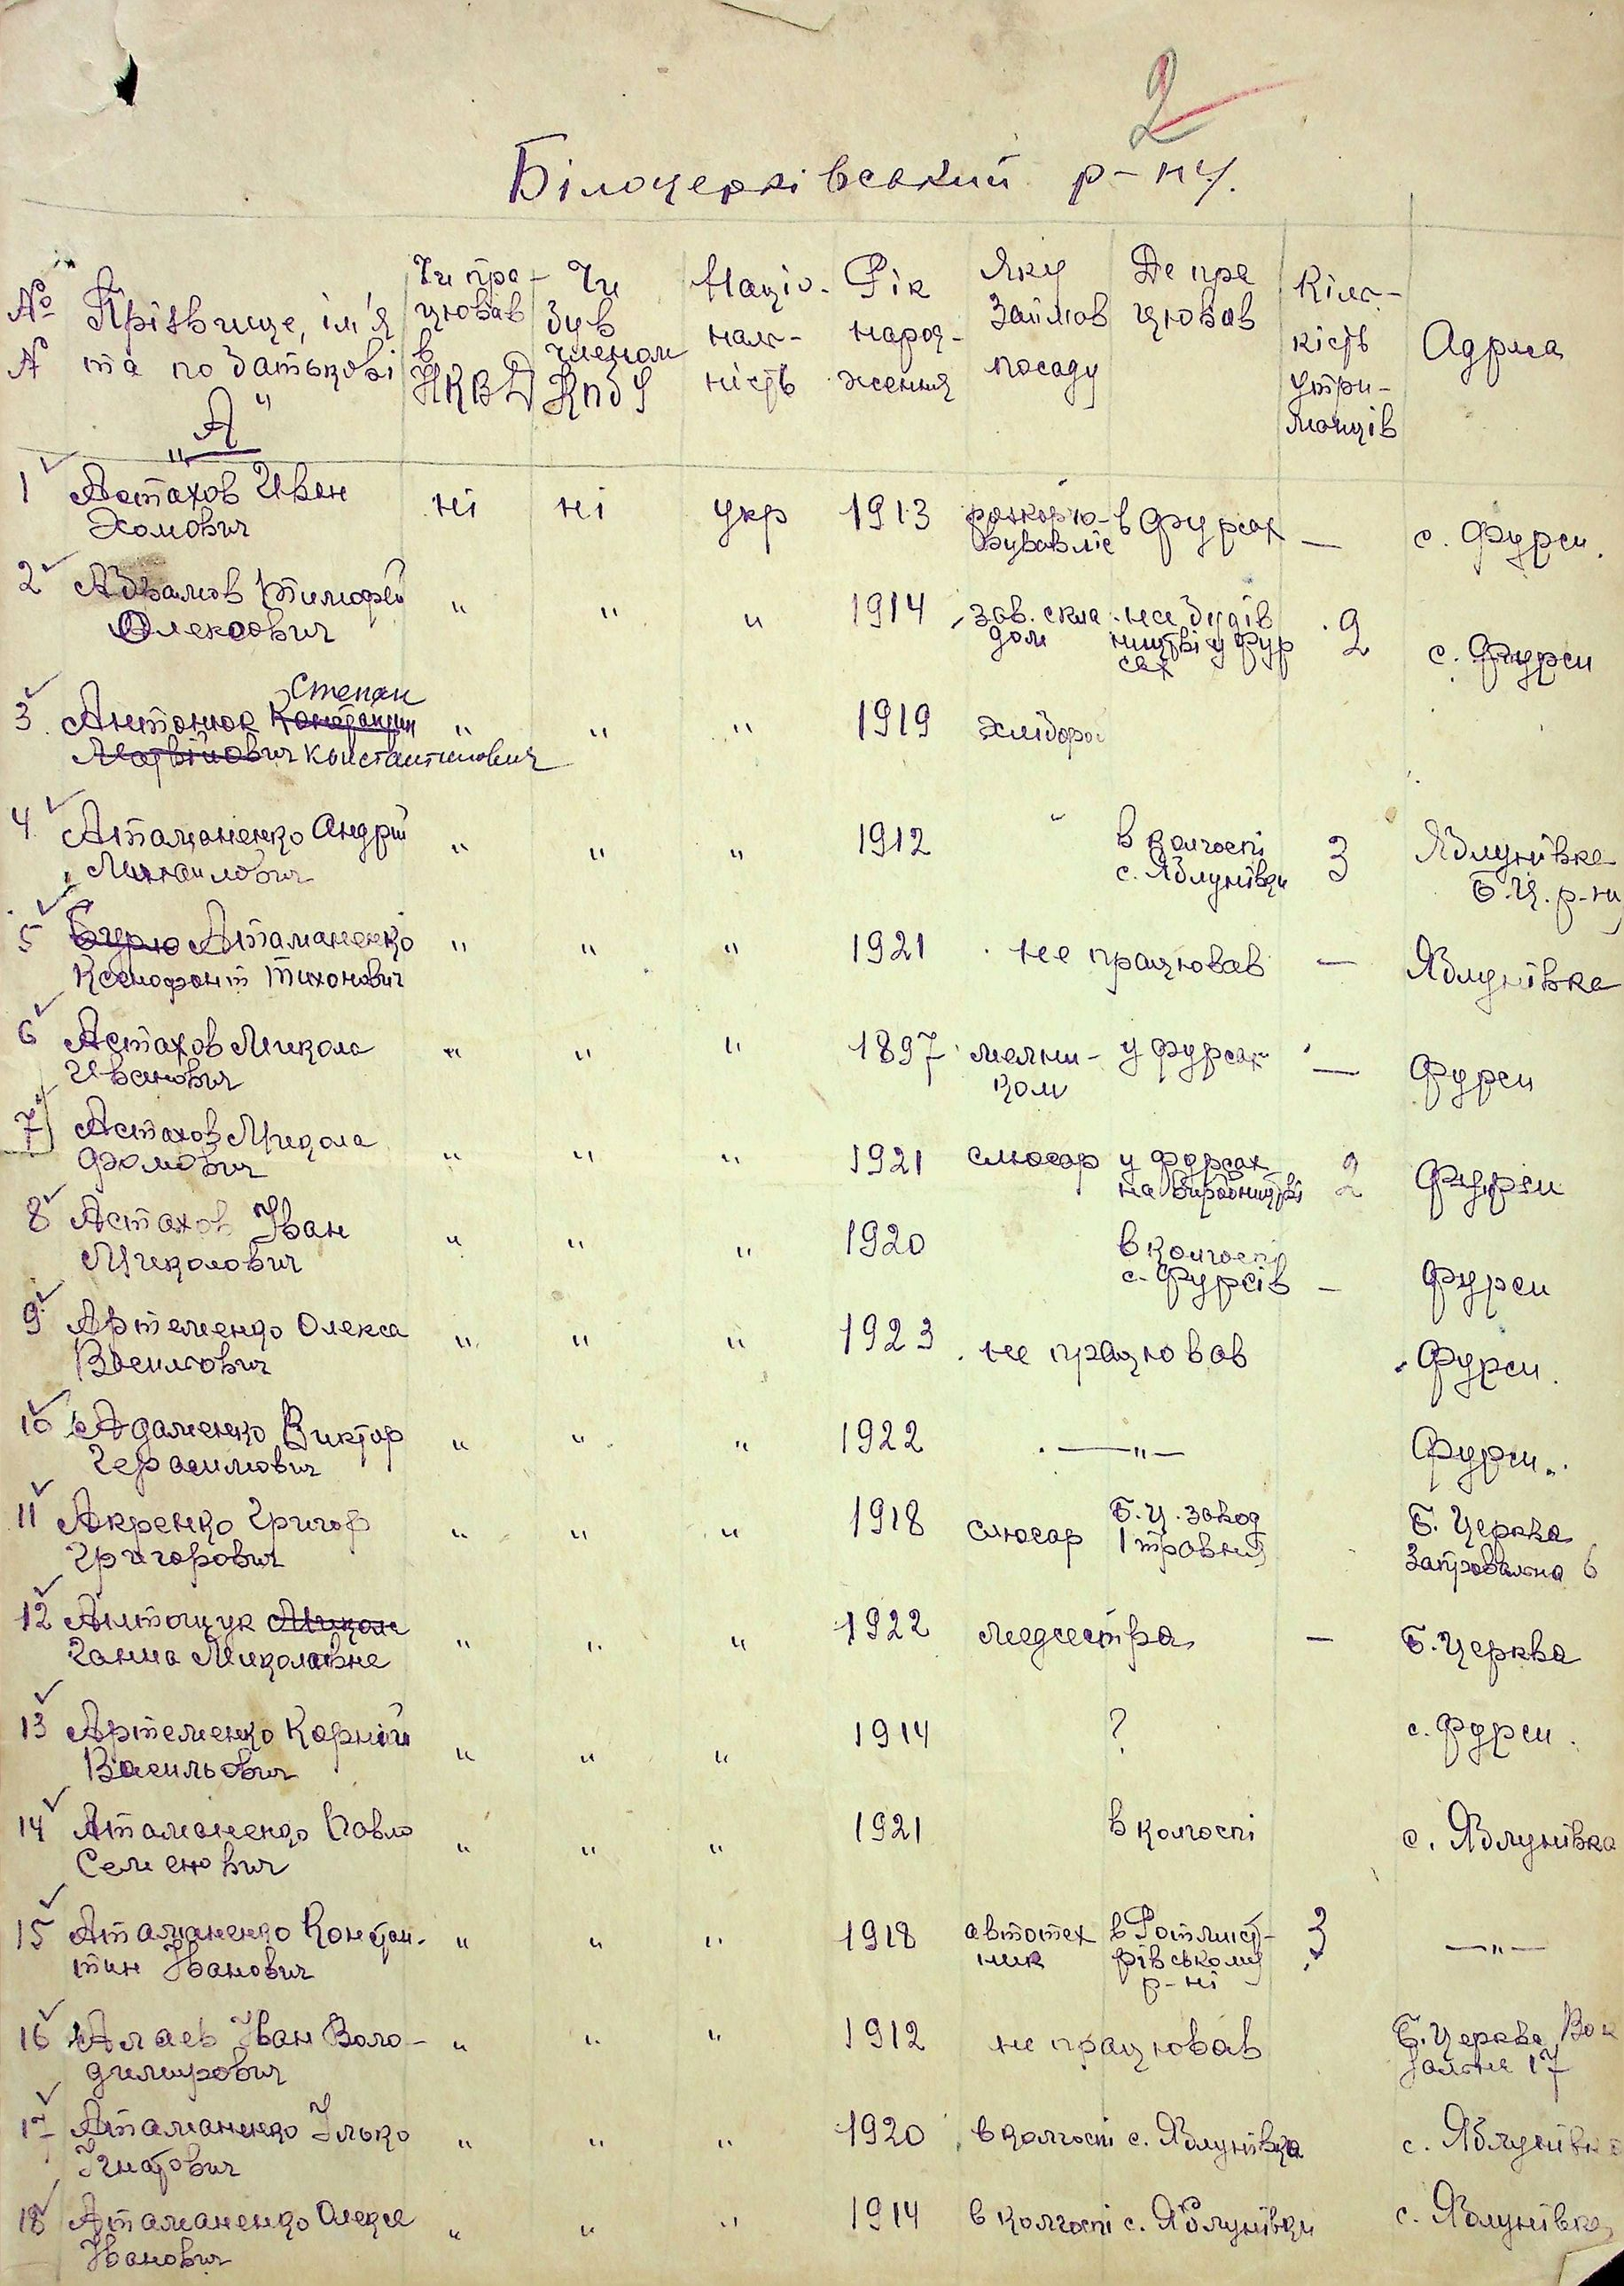 2
Білоцерківський р-ну.
№ № Прізвище, ім'я та по батькові | Чи працював в НКВД | Чи був членом КПбУ | Націо-наль-ність | Рік народ-ження | Яку займав посаду | Де працював | Кіль-кість утри-манців | Адреса
"А"
1 Астахов Иван Хомович | ні | ні | укр | 1913 | в Фурсах | — | с. Фурси.
2 Абрамов Тимофей Олексович | " | " | " | 1914 | зав. складом | на будівництві у Фурсах | 2 | с. Фурси
3. Антонюк Степан Константинович | " | " | " | 1919 | хлібороб
4. Атаманенко Андрій Михайлович | " | " | " | 1912 | " | в колгоспі с. Яблунівки | 3 | Яблунівка Б.Ц. р-ну
5 Атаманенко Ксенофонт Тихонович | " | " | " | 1921 | не працював | — | Яблунівка
6 Астахов Микола Иванович | " | " | " | 1897 | мельником | у Фурсах | — | Фурси
7 Астахов Микола Фомович | " | " | " | 1921 | слюсар | у Фурсах на виробництві | 2 | Фурси
8 Астахов Іван Миколович | " | " | " | 1920 | в колгоспі с. Фурсів | — | Фурси
9 Артеменко Олекса Васильович | " | " | " | 1923 | не працював | Фурси.
10 Адаменко Виктор Герасимович | " | " | " | 1922 | —"— | Фурси.
11 Акренко Григор Григорович | " | " | " | 1918 | слюсар | Б.Ц. завод 1 травня | Б. Церква 6
12 Антощук Ганна Миколаївна | " | " | " | 1922 | медсестра | — | Б. Церква
13 Артеменко Корній Васильович | " | " | " | 1914 | ? | с. Фурси.
14 Атаманенко Павло Семенович | " | " | " | 1921 | в колгоспі | с. Яблунівка
15 Атаманенко Констан-тин Іванович | " | " | " | 1918 | автотехник | в р-ні | 3 | —"—
16 Алаев Іван Воло-димирович | " | " | " | 1912 | не працював | Б. Церква Вокзальна 17
17 Атаманенко Ілько Ігнатович | " | " | " | 1920 | в колгоспі с. Яблунівка | с. Яблунівка
18 Атаманенко Олекса Іванович | " | " | " | 1914 | в колгоспі с. Яблунівки | с. Яблунівка